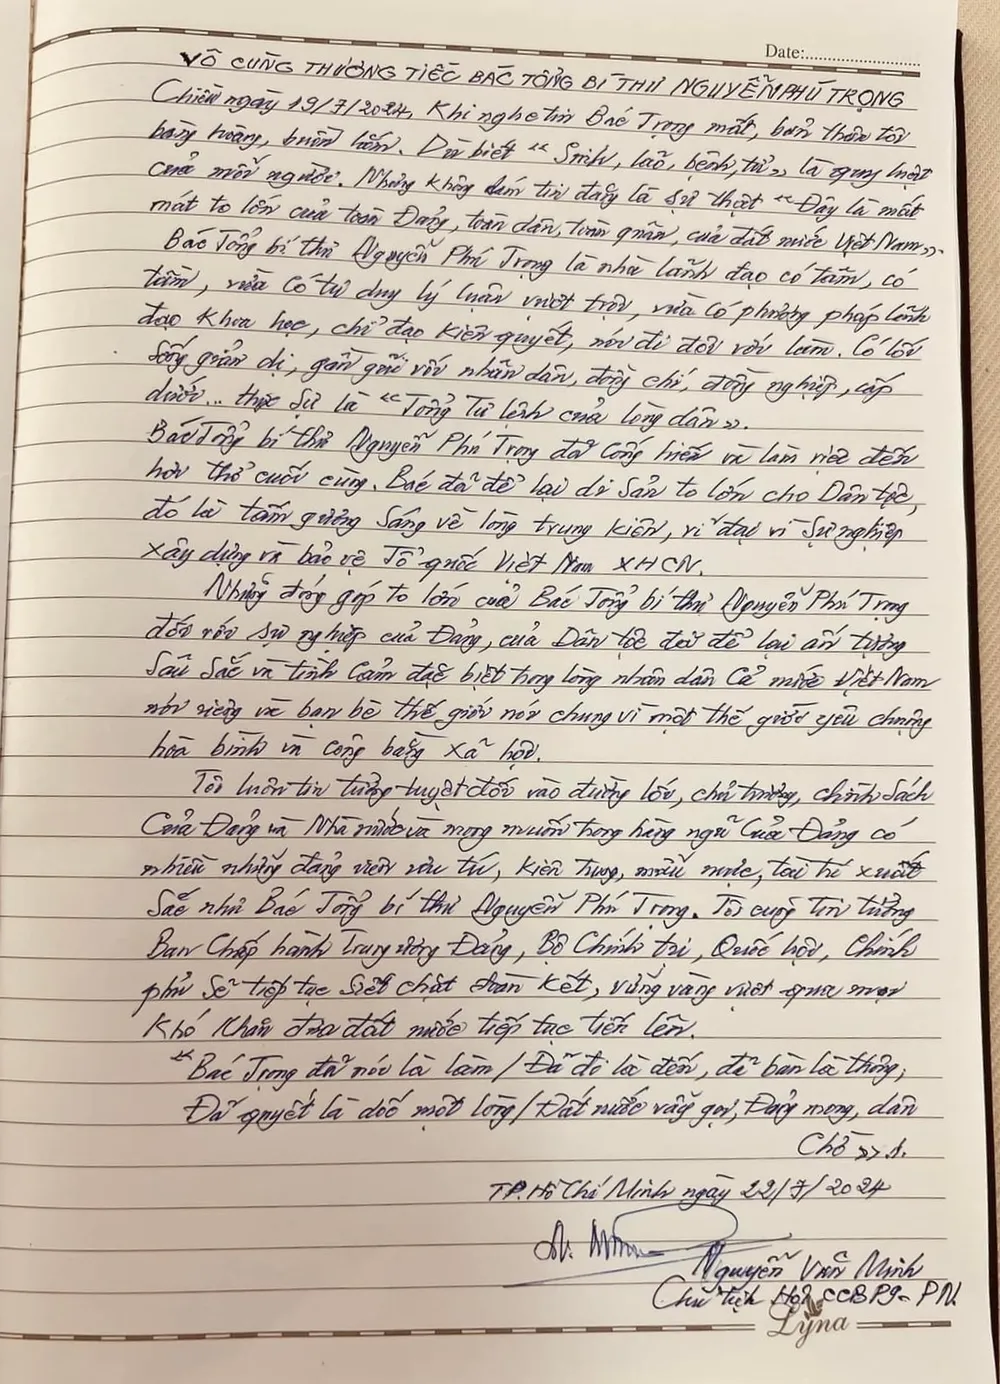 Date:
VÔ CÙNG THƯƠNG TIẾC BÁC TỔNG BÍ THƯ NGUYỄN PHÚ TRỌNG
Chiều ngày 19/7/2024, Khi nghe tin Bác Trọng mất, bản thân tôi
bàng hoàng, buồn lắm. Dù biết "Sinh, lão, bệnh, tử" là quy luật
của mỗi người. Nhưng không dám tin đây là sự thật "Đây là mất
mát to lớn của toàn Đảng, toàn dân, toàn quân, của đất nước Việt Nam".
Bác Tổng bí thư Nguyễn Phú Trọng là nhà lãnh đạo có tâm, có
tầm, vừa có tư duy lý luận vượt trội, vừa có phương pháp lãnh
đạo khoa học, chỉ đạo kiên quyết, nói đi đôi với làm. Có lối
sống giản dị, gần gũi với nhân dân, đồng chí, đồng nghiệp, cấp
dưới... thực sự là "Tổng Tư lệnh của lòng dân".
Bác Tổng bí thư Nguyễn Phú Trọng đã cống hiến và làm việc đến
hơi thở cuối cùng. Bác đã để lại di sản to lớn cho Dân tộc,
đó là tấm gương sáng về lòng trung kiên, vĩ đại vì sự nghiệp
xây dựng và bảo vệ Tổ quốc Việt Nam XHCN.
Những đóng góp to lớn của Bác Tổng bí thư Nguyễn Phú Trọng
đối với sự nghiệp của Đảng, của Dân tộc đã để lại ấn tượng
sâu sắc và tình cảm đặc biệt trong lòng nhân dân cả nước Việt Nam
nói riêng và bạn bè thế giới nói chung vì một thế giới yêu chuộng
hòa bình và công bằng xã hội.
Tôi luôn tin tưởng tuyệt đối vào đường lối, chủ trương, chính sách
của Đảng và Nhà nước và mong muốn trong hàng ngũ của Đảng có
nhiều những đảng viên ưu tú, kiên trung, mẫu mực, tài trí xuất
sắc như Bác Tổng bí thư Nguyễn Phú Trọng. Tôi cũng tin tưởng
Ban Chấp hành Trung ương Đảng, Bộ Chính trị, Quốc hội, Chính
phủ sẽ tiếp tục siết chặt đoàn kết, vững vàng vượt qua mọi
khó khăn đưa đất nước tiếp tục tiến lên.
"Bác Trọng đã nói là làm/ Đã đi là đến, đã bàn là thông,
Đã quyết là dốc một lòng/ Đất nước vẫy gọi, Đảng mong, dân
Chờ"./.
TP. Hồ Chí Minh ngày 22/7/2024
Nguyễn Văn Minh
Chủ tịch Hội CCB P9- PN.
Lyna